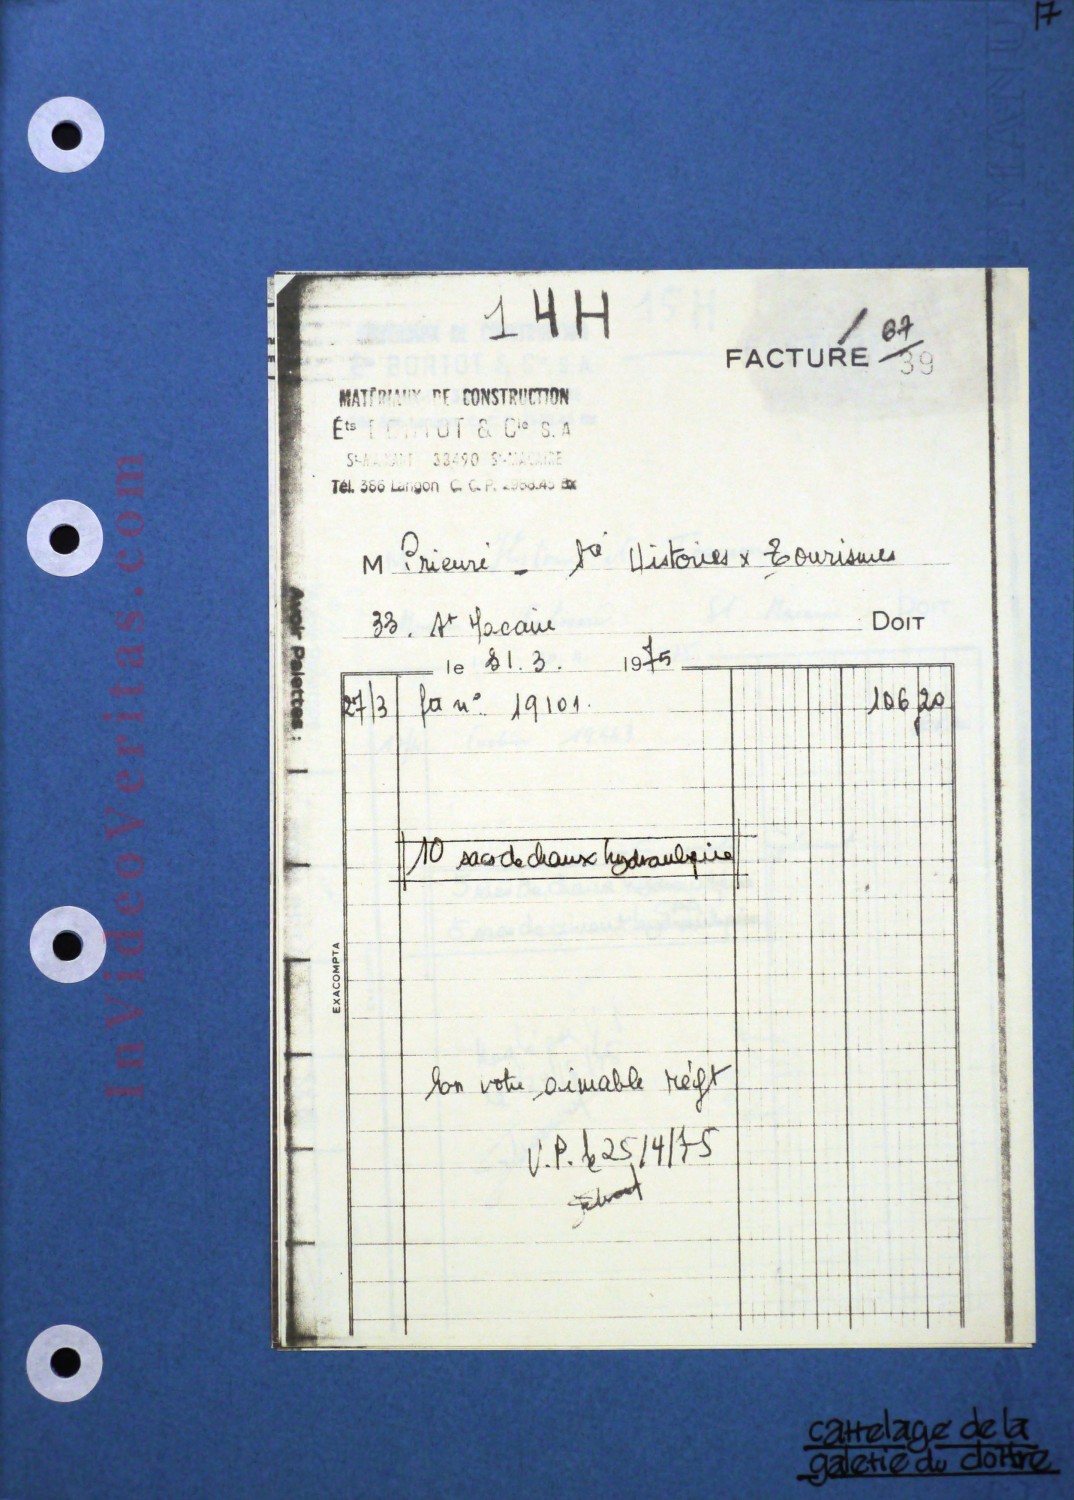 17
14H
FACTURE 67
39
MATÉRIAUX DE CONSTRUCTION
Éts & Cie S. A
33490 St-MACAIRE
Tél. 386 Langon C. C. P. Bx
M Prieuré - Sté Histoires & Tourismes
33. St Macaire DOIT
le 31. 3. 1975
27/3 fa n° 19101. 106 20
10 sacs de chaux hydraulique
EXACOMPTA
Avoir Palettes :
InVideoVeritas.com
votre aimable régt
V.P. le 25/4/75
carrelage de la
galerie du cloître